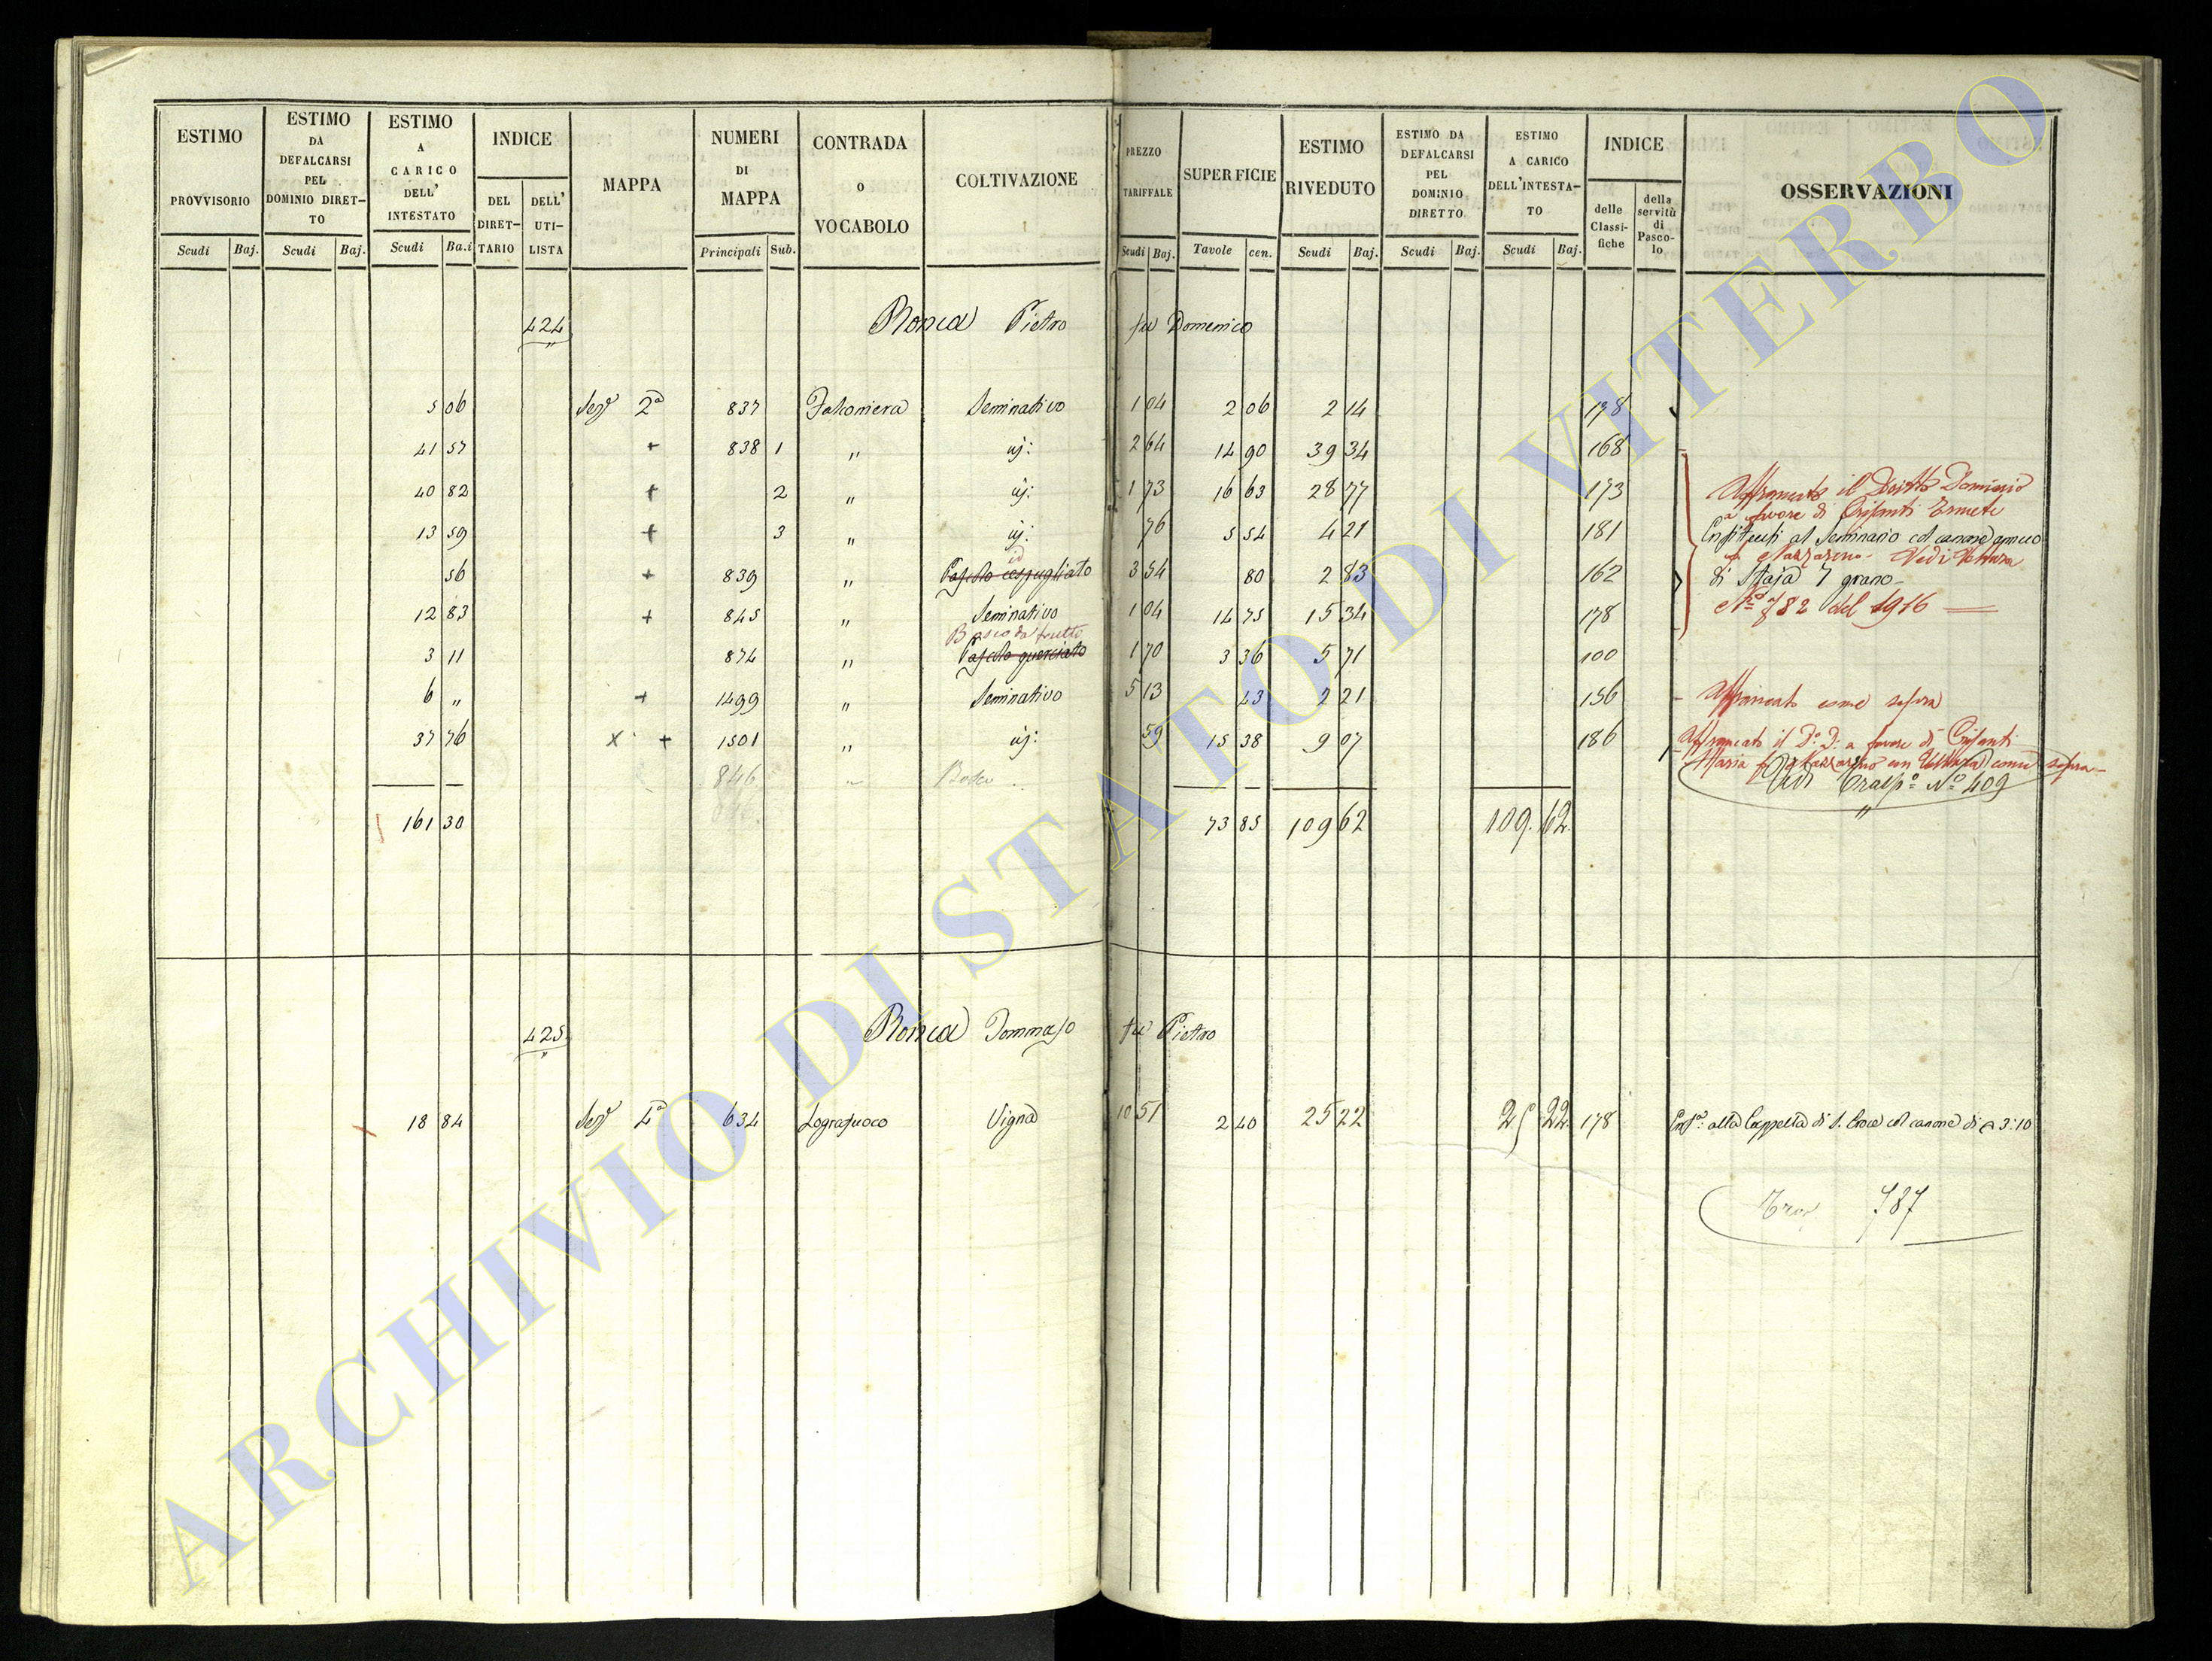 ESTIMO PROVVISORIO Scudi Baj.
ESTIMO DA DEFALCARSI PEL DOMINIO DIRET-TO Scudi Baj.
ESTIMO A CARICO DELL' INTESTATO Scudi Ba.i
INDICE DEL DIRET-TARIO DELL' UTI-LISTA
MAPPA
NUMERI DI MAPPA Principali Sub.
CONTRADA O VOCABOLO
COLTIVAZIONE
PREZZO TARIFFALE Scudi Baj.
SUPERFICIE Tavole cen.
ESTIMO RIVEDUTO Scudi Baj.
ESTIMO DA DEFALCARSI PEL DOMINIO DIRETTO Scudi Baj.
ESTIMO A CARICO DELL'INTESTA-TO Scudi Baj.
INDICE delle Classi-fiche della servitù di Pasco-lo
OSSERVAZIONI
424 Ronca Pietro fu Domenico
5 06 Sez.e 2a 837 Falconiera Seminativo 1 04 2 06 2 14 178
41 57 + 838 1 " id: 2 64 14 90 39 34 168
40 82 + 2 " id: 1 73 16 63 28 77 173 Affrancato il Diretto Dominio
a favore di Crisanti Ermete
13 59 + 3 " id: 76 5 54 4 21 181 Enfiteuti al Seminario col canone annuo
id Vedi Voltura
56 + 839 " Pascolo cespugliato 3 54 80 2 83 162 di Staja 7 grano
12 83 + 845 " Seminativo 1 04 14 75 15 34 178 No 782 del 1916
Bosco da frutto
3 11 874 " Pascolo querciato 1 70 3 36 5 71 100
6 " + 1499 " Seminativo 5 13 43 2 21 156 Affrancato come sopra
37 76 x + 1501 " id: 59 15 38 9 07 186 Affrancato il D.o D.o a favore di Crisanti
Maria come sopra
846 " Bosco Vedi Trasp.o No 409
846
161 30 73 85 109 62 109. 62.
425 Ronca Tommaso fu Pietro
18 84 Sez.e 4a 634 Lografuoco Vigna 10 51 2 40 25 22 25 22. 178 Enf.a alla Cappella di S. Croce col canone di 3:10
787
ARCHIVIO DI STATO DI VITERBO